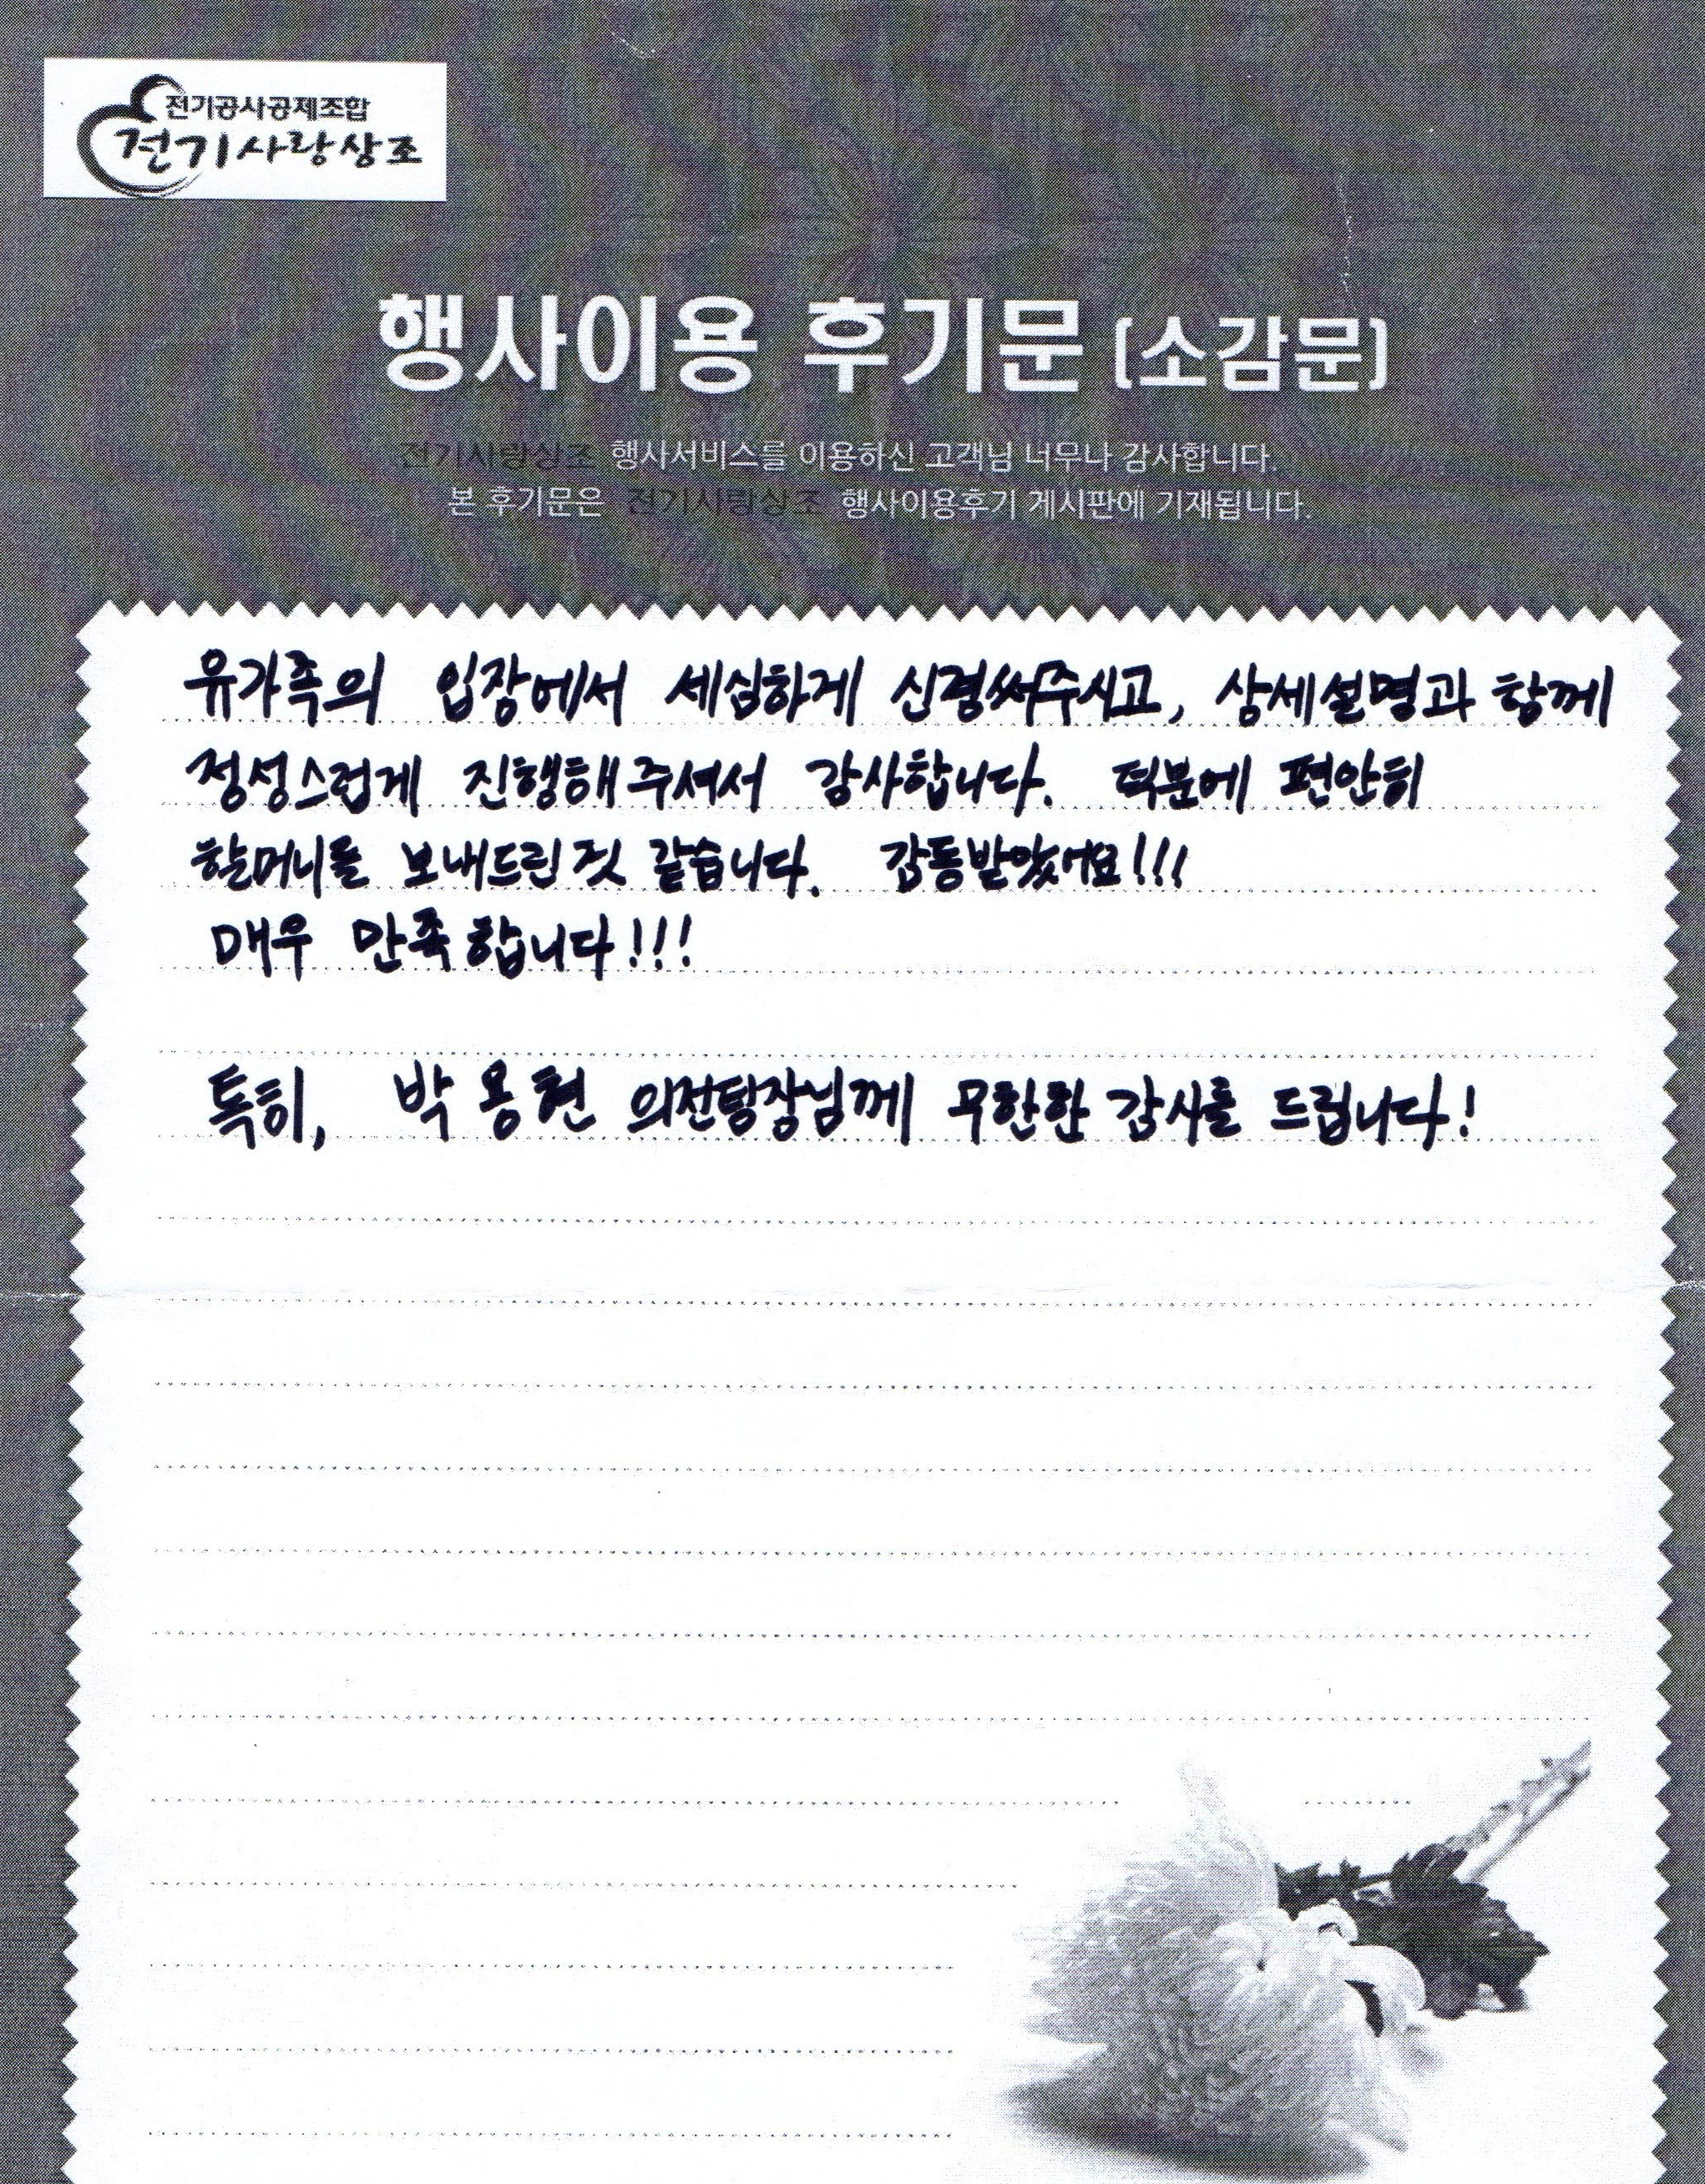 전기공사공제조합
전기사랑상조
행사이용 후기문 (소감문)
전기사랑상조 행사서비스를 이용하신 고객님 너무나 감사합니다.
본 후기문은 전기사랑상조 행사이용후기 게시판에 기재됩니다.
유가족의 입장에서 세심하게 신경써주시고, 상세설명과 함께
정성스럽게 진행해주셔서 감사합니다. 덕분에 편안히
할머니를 보내드린것 같습니다. 감동받았어요!!!
매우 만족합니다!!!
특히, 박용현 의전팀장님께 무한한 감사를 드립니다!